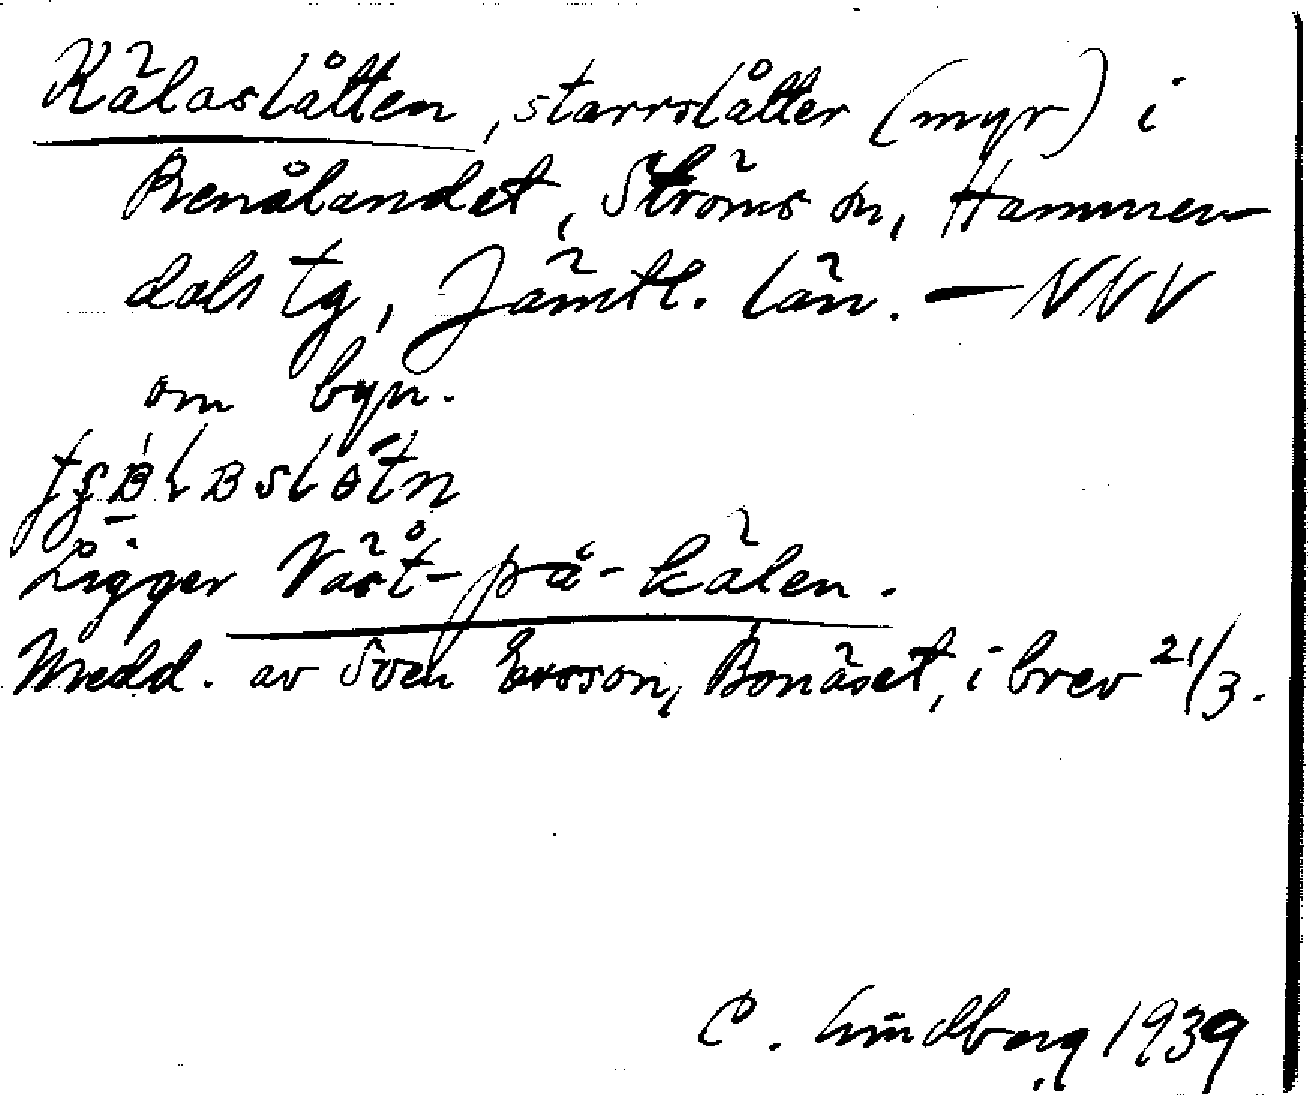 Kälaslåtten, starrslåtter (myr) i
Renålandet, Ströms sn, Hammer-
dals tg, Jämtl. län. — NNV
om byn.
Ligger Väst-på-kälen.
Medd. av Sven Ersson, Bonäset, i brev 21/3.
C. Lindberg 1939